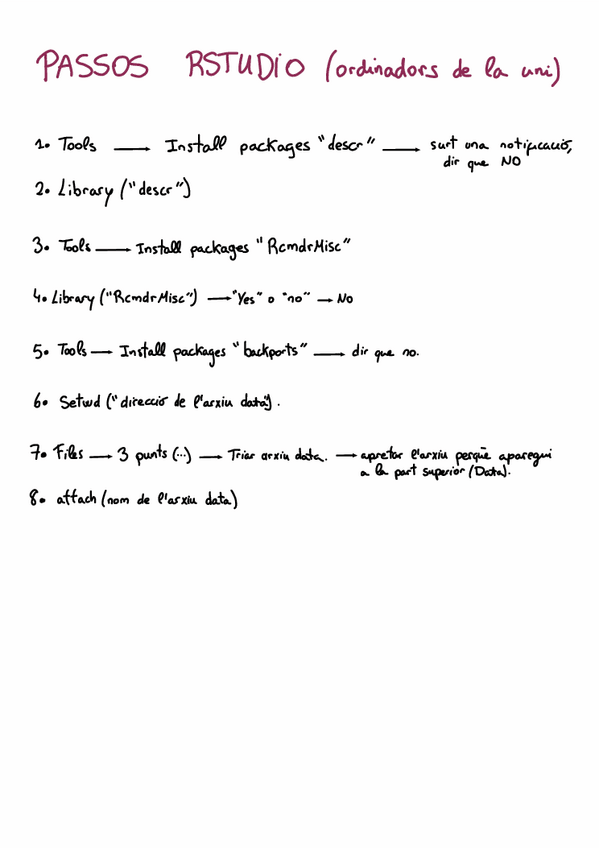 PASSOS RSTUDIO (ordinadors de la uni)
1. Tools → Install packages "descr" → surt una notificació,
dir que NO
2. Library ("descr")
3. Tools → Install packages "RcmdrMisc"
4. Library ("RcmdrMisc") → "Yes" o "no" → No
5. Tools → Install packages "backports" → dir que no.
6. Setwd ("direcció de l'arxiu data").
7. Files → 3 punts (...) → Triar arxiu data. → apretar l'arxiu perquè aparegui
a la part superior (Data).
8. attach (nom de l'arxiu data)